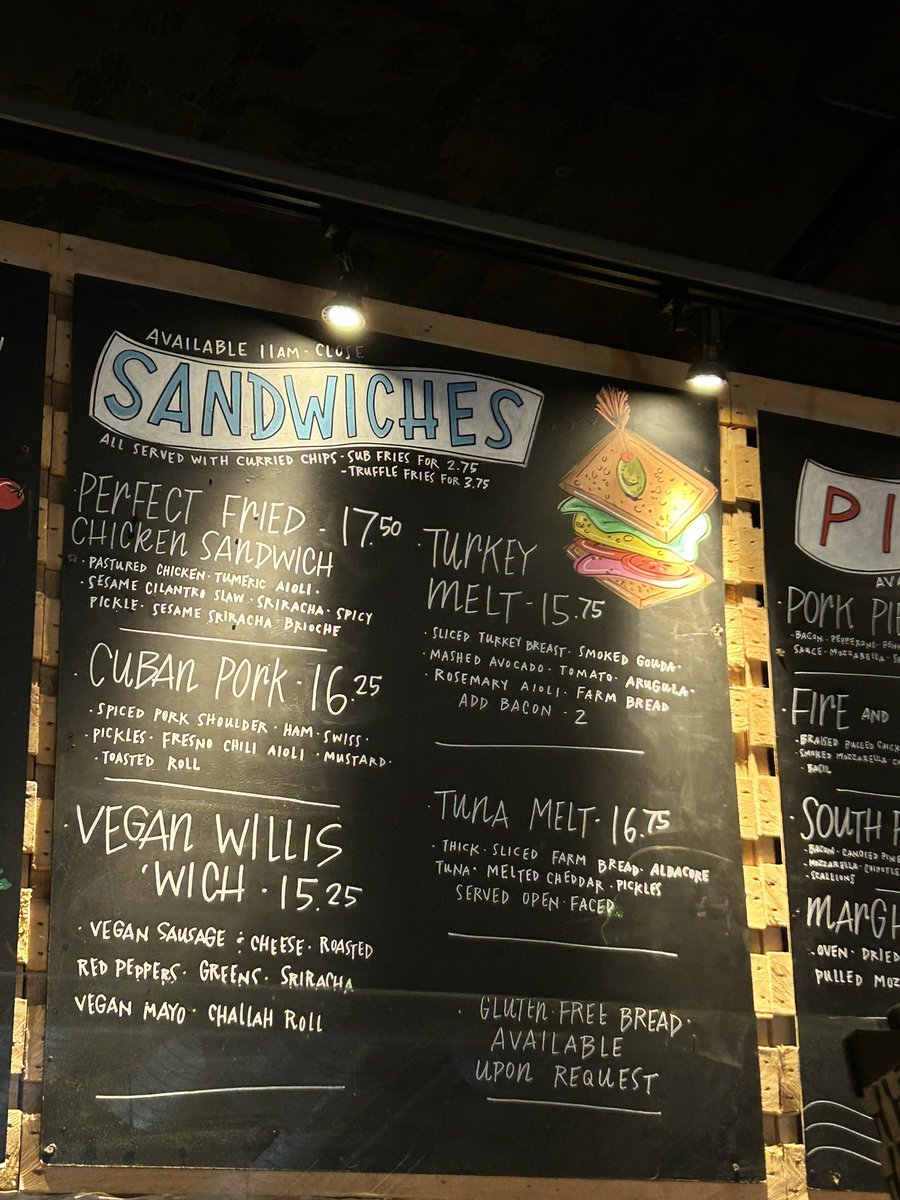 AVAILABLE 11AM - CLOSE
SANDWICHES
ALL SERVED WITH CURRIED CHIPS - SUB FRIES FOR 2.75
- TRUFFLE FRIES FOR 3.75
· PERFECT FRIED - 17.50
CHICKEN SANDWICH
· PASTURED CHICKEN · TUMERIC AIOLI ·
· SESAME CILANTRO SLAW · SRIRACHA · SPICY
PICKLE · SESAME SRIRACHA BRIOCHE
· CUBAN PORK · 16.25
· SPICED PORK SHOULDER · HAM · SWISS ·
· PICKLES · FRESNO CHILI AIOLI · MUSTARD ·
· TOASTED ROLL
· VEGAN WILLIS
'WICH · 15.25
· VEGAN SAUSAGE & CHEESE · ROASTED
RED PEPPERS · GREENS · SRIRACHA
VEGAN MAYO · CHALLAH ROLL
· TURKEY
MELT · 15.75
· SLICED TURKEY BREAST · SMOKED GOUDA ·
· MASHED AVOCADO · TOMATO · ARUGULA ·
· ROSEMARY AIOLI · FARM BREAD
ADD BACON · 2
· TUNA MELT · 16.75
· THICK · SLICED FARM BREAD · ALBACORE
TUNA · MELTED CHEDDAR · PICKLES
SERVED OPEN · FACED
· GLUTEN · FREE BREAD ·
AVAILABLE
UPON REQUEST
PI
AVA
· PORK PIE
· BACON · PEPPERONI ·
SAUCE · MOZZARELLA ·
· FIRE AND
· BRAISED PULLED CHICK
· SMOKED MOZZARELLA
· BASIL
· SOUTH
· BACON · CANDIED
· MOZZARELLA ·
· SCALLIONS
· MARGH
· OVEN · DRIED
PULLED MOZ